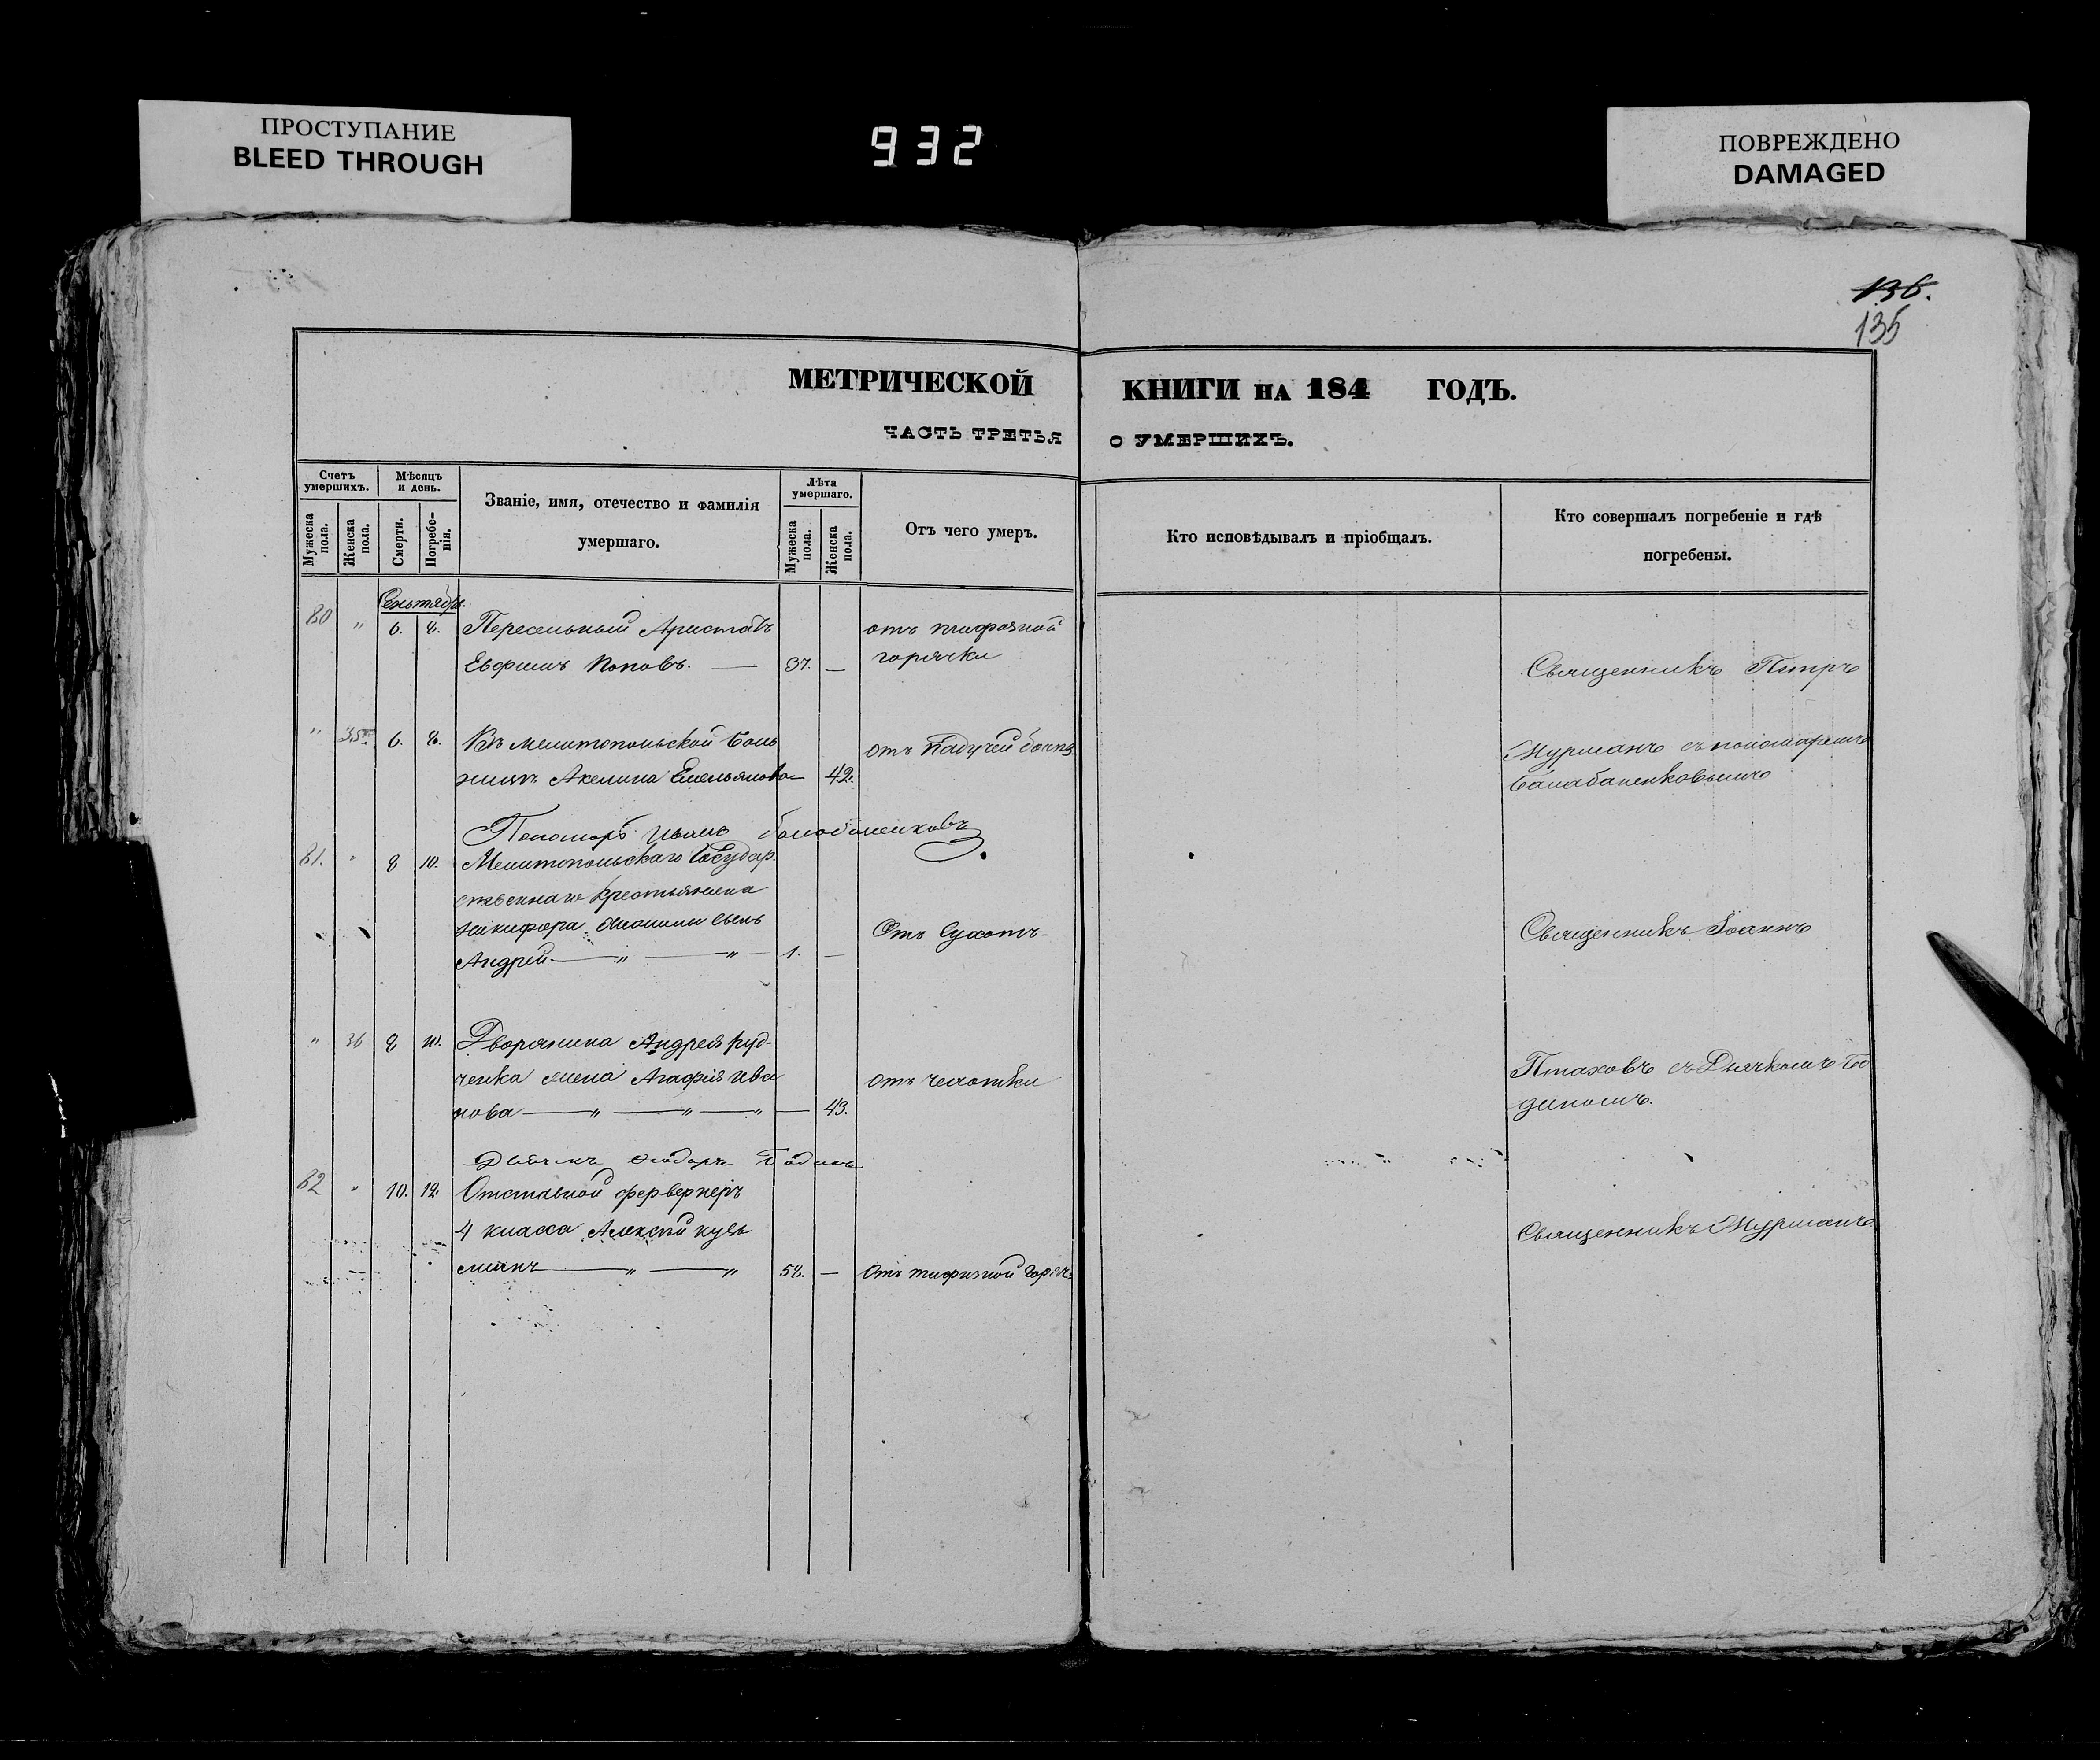 ПРОСТУПАНИЕ
BLEED THROUGH
932
ПОВРЕЖДЕНО
DAMAGED
136.
135
МЕТРИЧЕСКОЙ КНИГИ НА 184 ГОДЪ.
ЧАСТЬ ТРЕТЬЯ О УМЕРШИХЪ.
Счетъ умершихъ.
Мужеска пола.
Женска пола.
Мѣсяцъ и день.
Смерти.
Погребе-нія.
Званіе, имя, отечество и фамилія
умершаго.
Лѣта умершаго.
Мужеска пола.
Женска пола.
Отъ чего умеръ.
Кто исповѣдывалъ и пріобщалъ.
Кто совершалъ погребеніе и гдѣ
погребены.
Сентября.
80 " 6. 8. отъ тифозной
Евфимъ Поповъ. — 37. — горячки
Священникъ Петръ
" 35 6. 8. Въ Мелитопольской боль
отъ Падучей
Акелина Емельянова 42.
Мурманъ съ пономаремъ
Балабаненковымъ
Пономарь
81. " 8 10. Мелитопольскаго Государ
ственнаго крестьянина
Никифора сынъ
Отъ Сухотъ
Андрей — " — " — 1. —
Священникъ Іоаннъ
" 36 8 10. Дворянина Андрея Руд-
ченка жена Агафія Ива
отъ чахотки
нова — " — " — " — 43.
Птаховъ съ Дьячкомъ Го
диномъ.
Дьячекъ Ѳеодоръ Годинъ
82 " 10. 12. Отставной ферверкеръ
4 класса Алексѣй Кузь
минъ — " — " 58. — Отъ тифозной горяч:
Священникъ Мурманъ